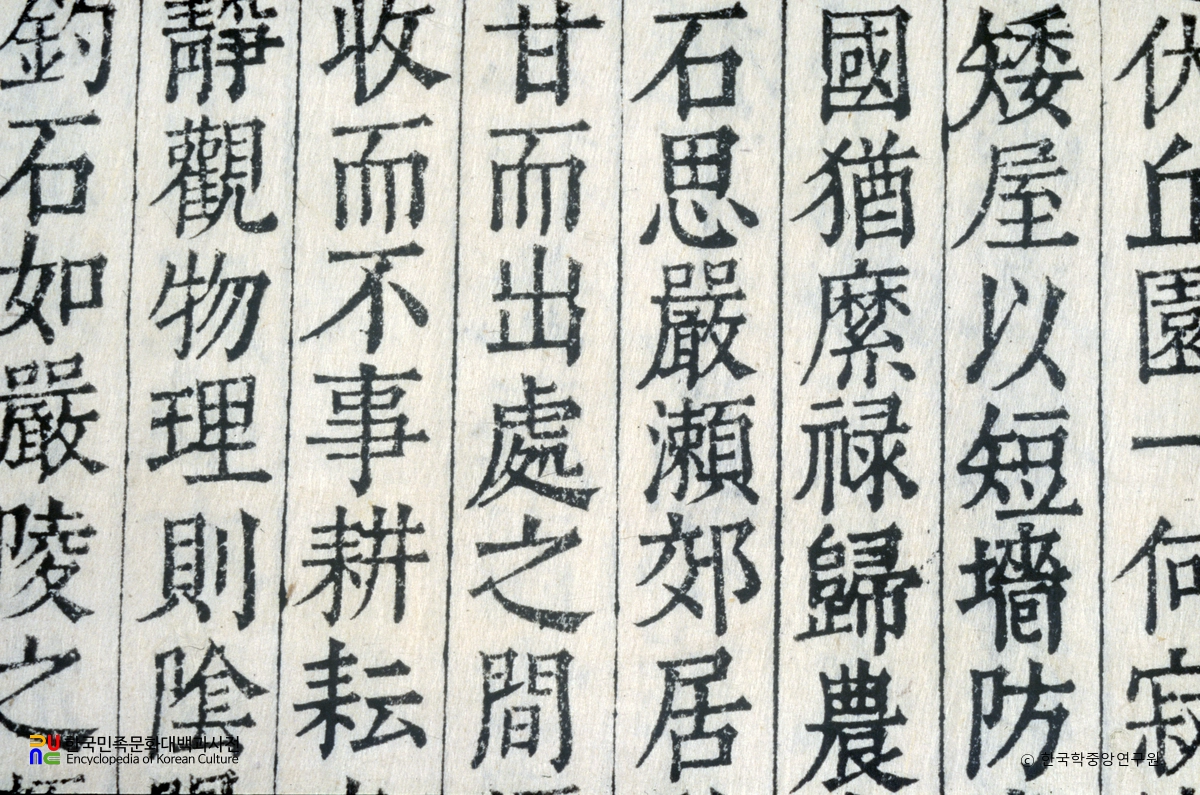 伏丘園一何寂
矮屋以短墻防
國猶縻禄歸農
石思嚴瀨郊居
甘而出處之間
收而不事耕耘
靜觀物理則陰
釣石如嚴陵之
한국민족문화대백과사전
Encyclopedia of Korean Culture
© 한국학중앙연구원